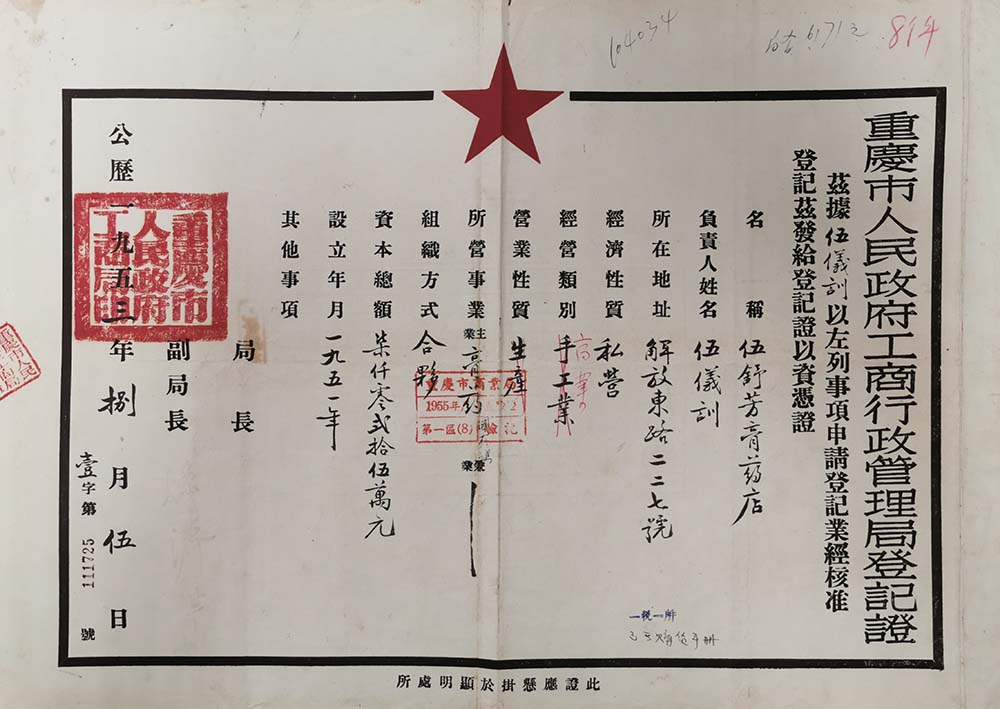 104034
81年
重慶市人民政府工商行政管理局登記證
茲據伍儀訓以左列事項申請登記業經核准
登記茲發給登記證以資憑證
名稱 伍舒芳膏药店
負責人姓名 伍儀訓
所在地址 解放東路二二七號
經濟性質 私營
經營類別 手工業
營業性質 生產
所營事業 主業 膏药 兼業
組織方式 合夥
資本總額 柒仟零弍拾伍萬元
設立年月 一九五一年
其他事項
局長
副局長
公歷一九五三年捌月伍日
壹字第111725號
重慶市人民政府工商局印
重慶市商業局
1955年
第一區(8)驗記
一稅一所
此證應懸掛於顯明處所